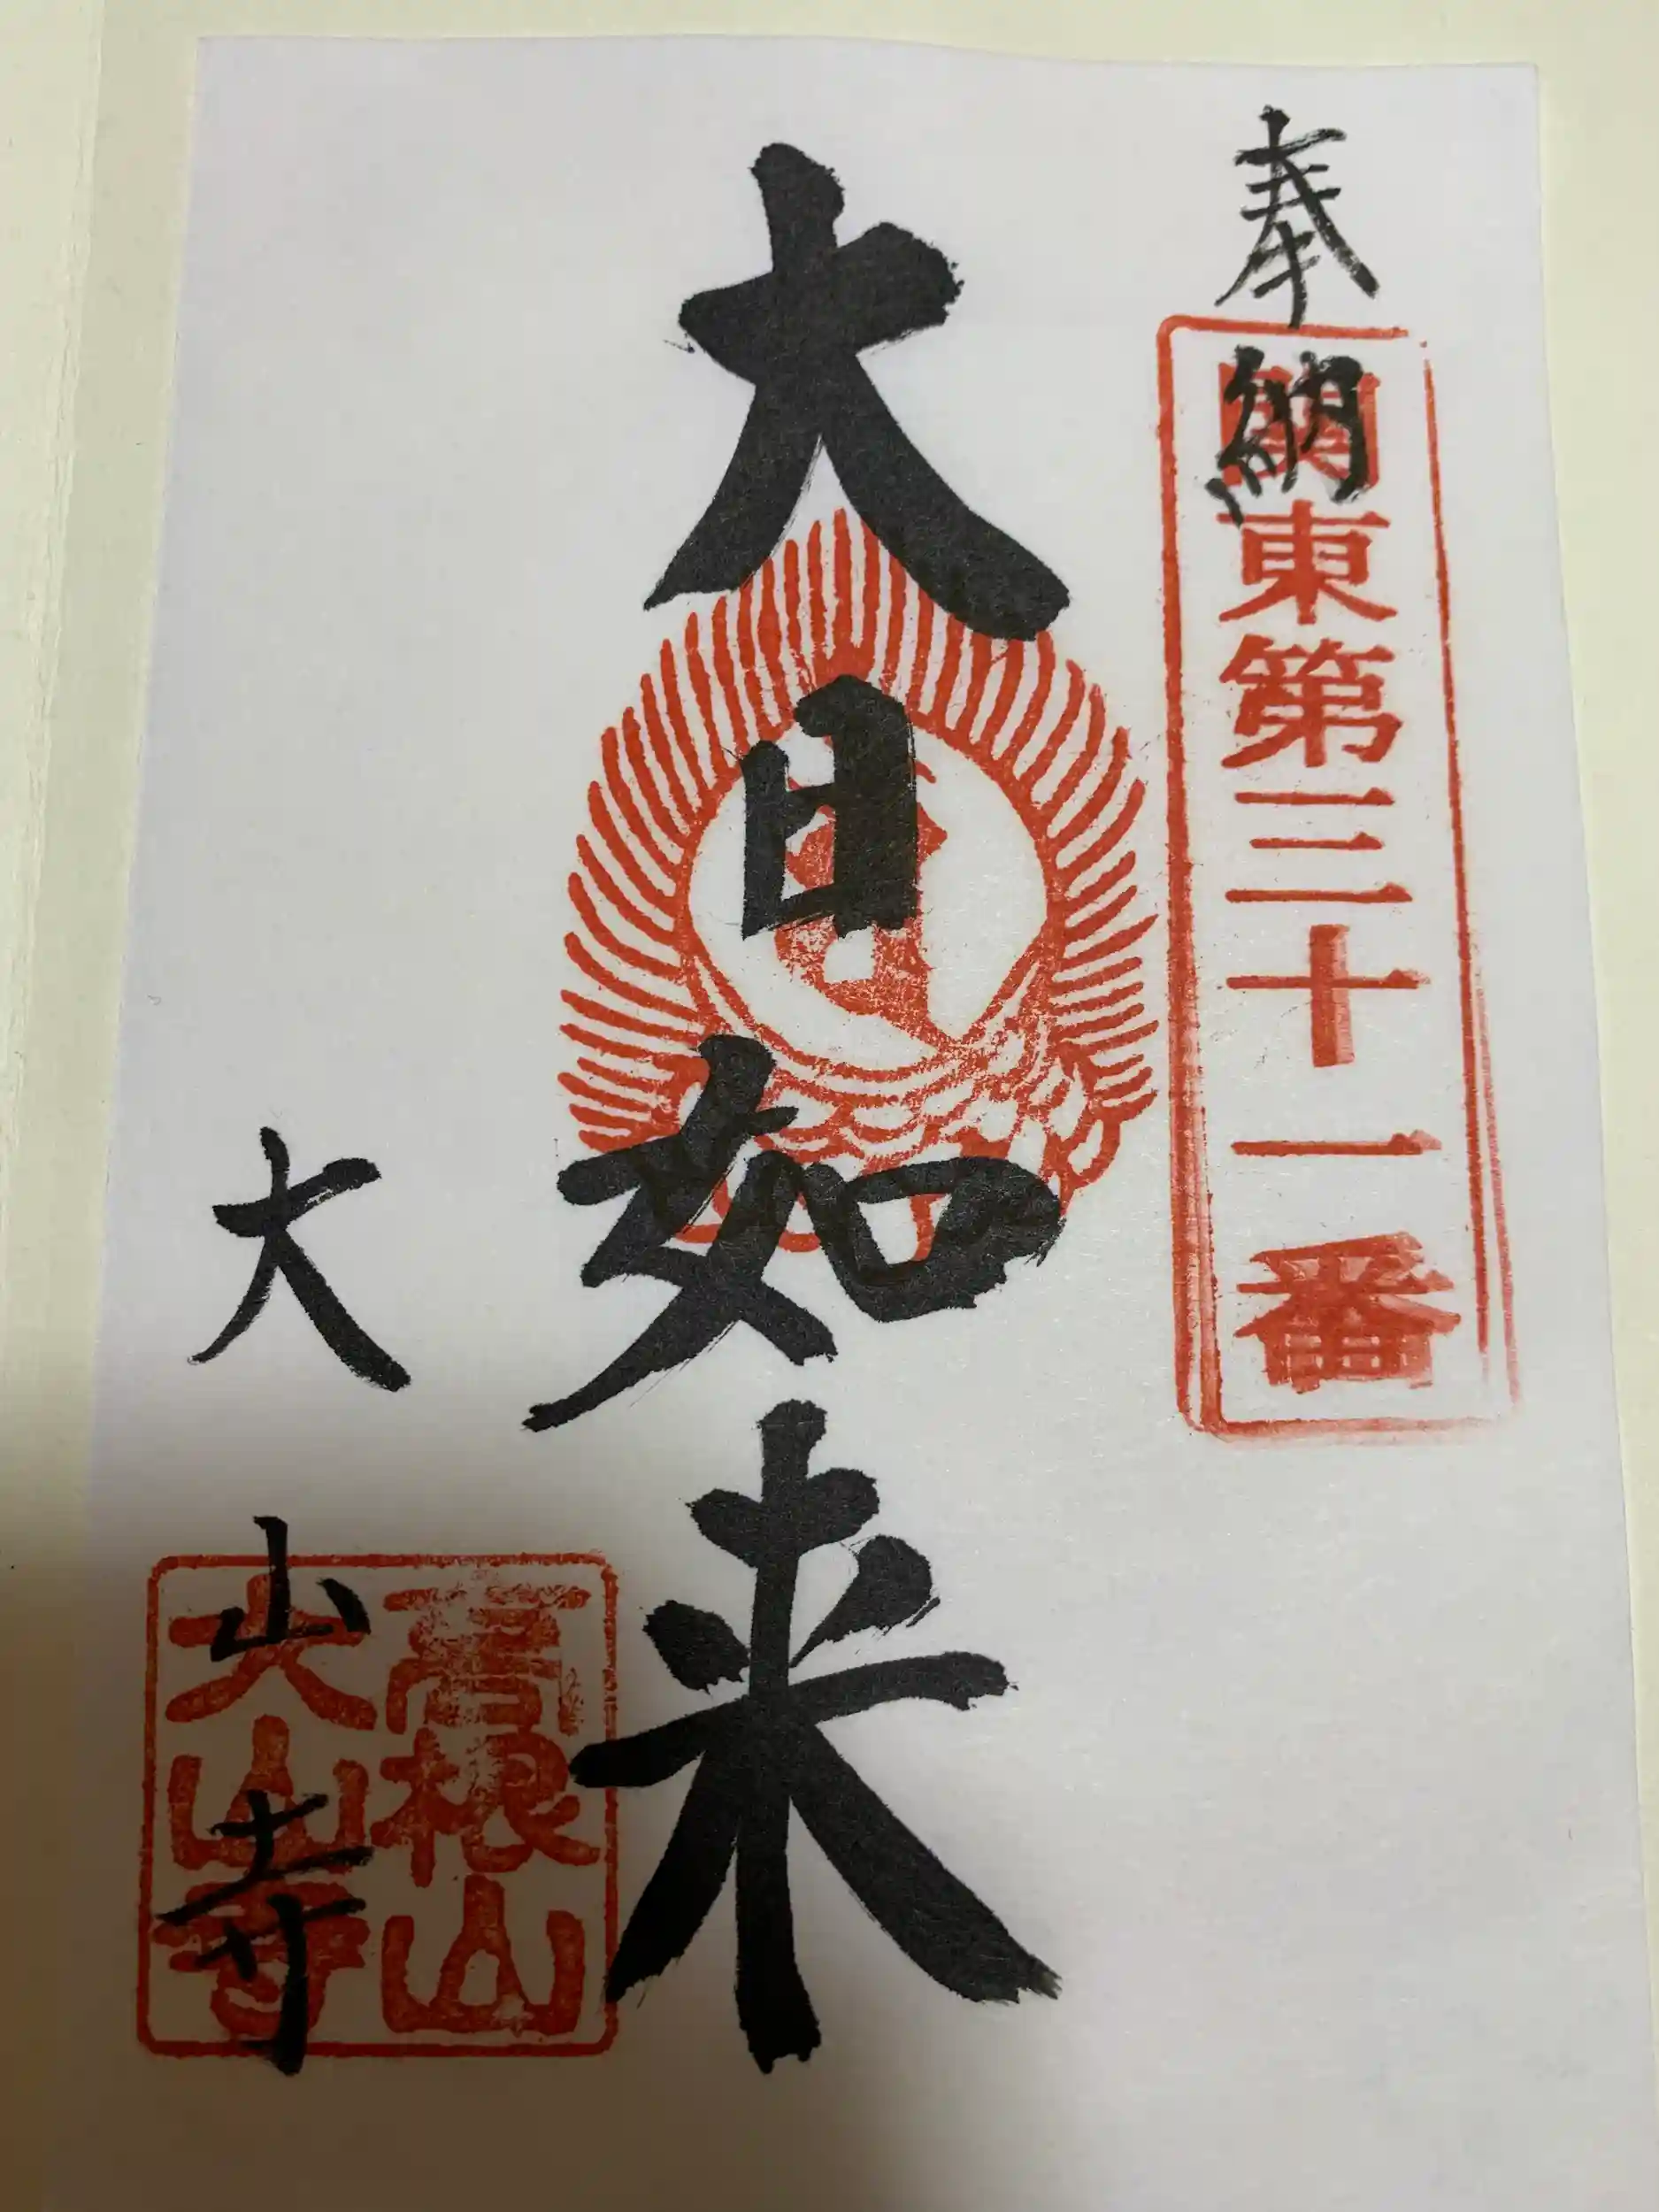 奉納
關東第三十一番
大日如来
大山寺
高根山
大山寺